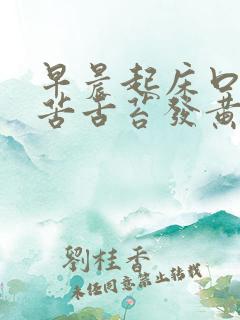 早晨起床口
苦舌苔發黃
劉桂香
未经同意禁止转载